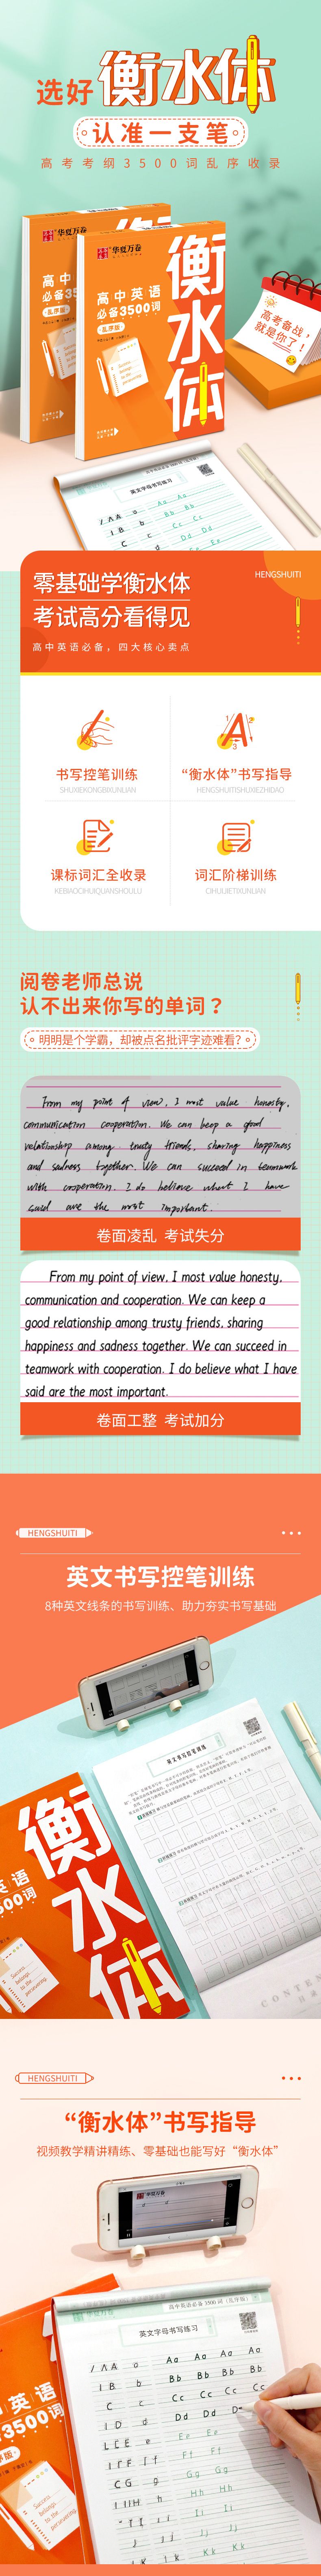 选好
衡水体
认准一支笔
高考考纲3500词乱序收录
华夏万卷
高中英语
必备3500词
乱序版
衡水体
华夏万卷
高中英语
必备3500词
乱序版
Success
belongs
to the
persevering
高考备战,
就是你了!
英文字母书写练习
零基础学衡水体
考试高分看得见
高中英语必备,四大核心卖点
HENGSHUITI
书写控笔训练
SHUXIEKONGBIXUNLIAN
“衡水体”书写指导
HENGSHUITISHUXIEZHIDAO
课标词汇全收录
KEBIAOCIHUIQUANSHOULU
词汇阶梯训练
CIHUIJIETIXUNLIAN
阅卷老师总说
认不出来你写的单词?
明明是个学霸,却被点名批评字迹难看?
From my point of view, I most value honesty,
communication cooperation. We can keep a good
relationship among trusty friends, sharing happiness
and sadness together. We can succeed in teamwork
with cooperation. I do believe what I have
said are the most important.
卷面凌乱 考试失分
From my point of view, I most value honesty,
communication and cooperation. We can keep a
good relationship among trusty friends, sharing
happiness and sadness together. We can succeed in
teamwork with cooperation. I do believe what I have
said are the most important.
卷面工整 考试加分
HENGSHUITI
英文书写控笔训练
8种英文线条的书写训练、助力夯实书写基础
英文书写控笔训练
衡水体
英语
500词
Success
belongs
to the
persevering
CONTEN
目录
HENGSHUITI
“衡水体”书写指导
视频教学精讲精练、零基础也能写好“衡水体”
华夏万卷
高中英语必备3500词(乱序版)
英文字母书写练习
Aa Aa Aa Aa
Bb Bb Bb Bb
Cc Cc Cc Cc
Dd Dd Dd D
Ee Ee
Ff Ff
Gg Gg
Hh Hh
Ii Ii
Jj Jj
Kk Kk
英语
3500词
Success
belongs
to the
persevering